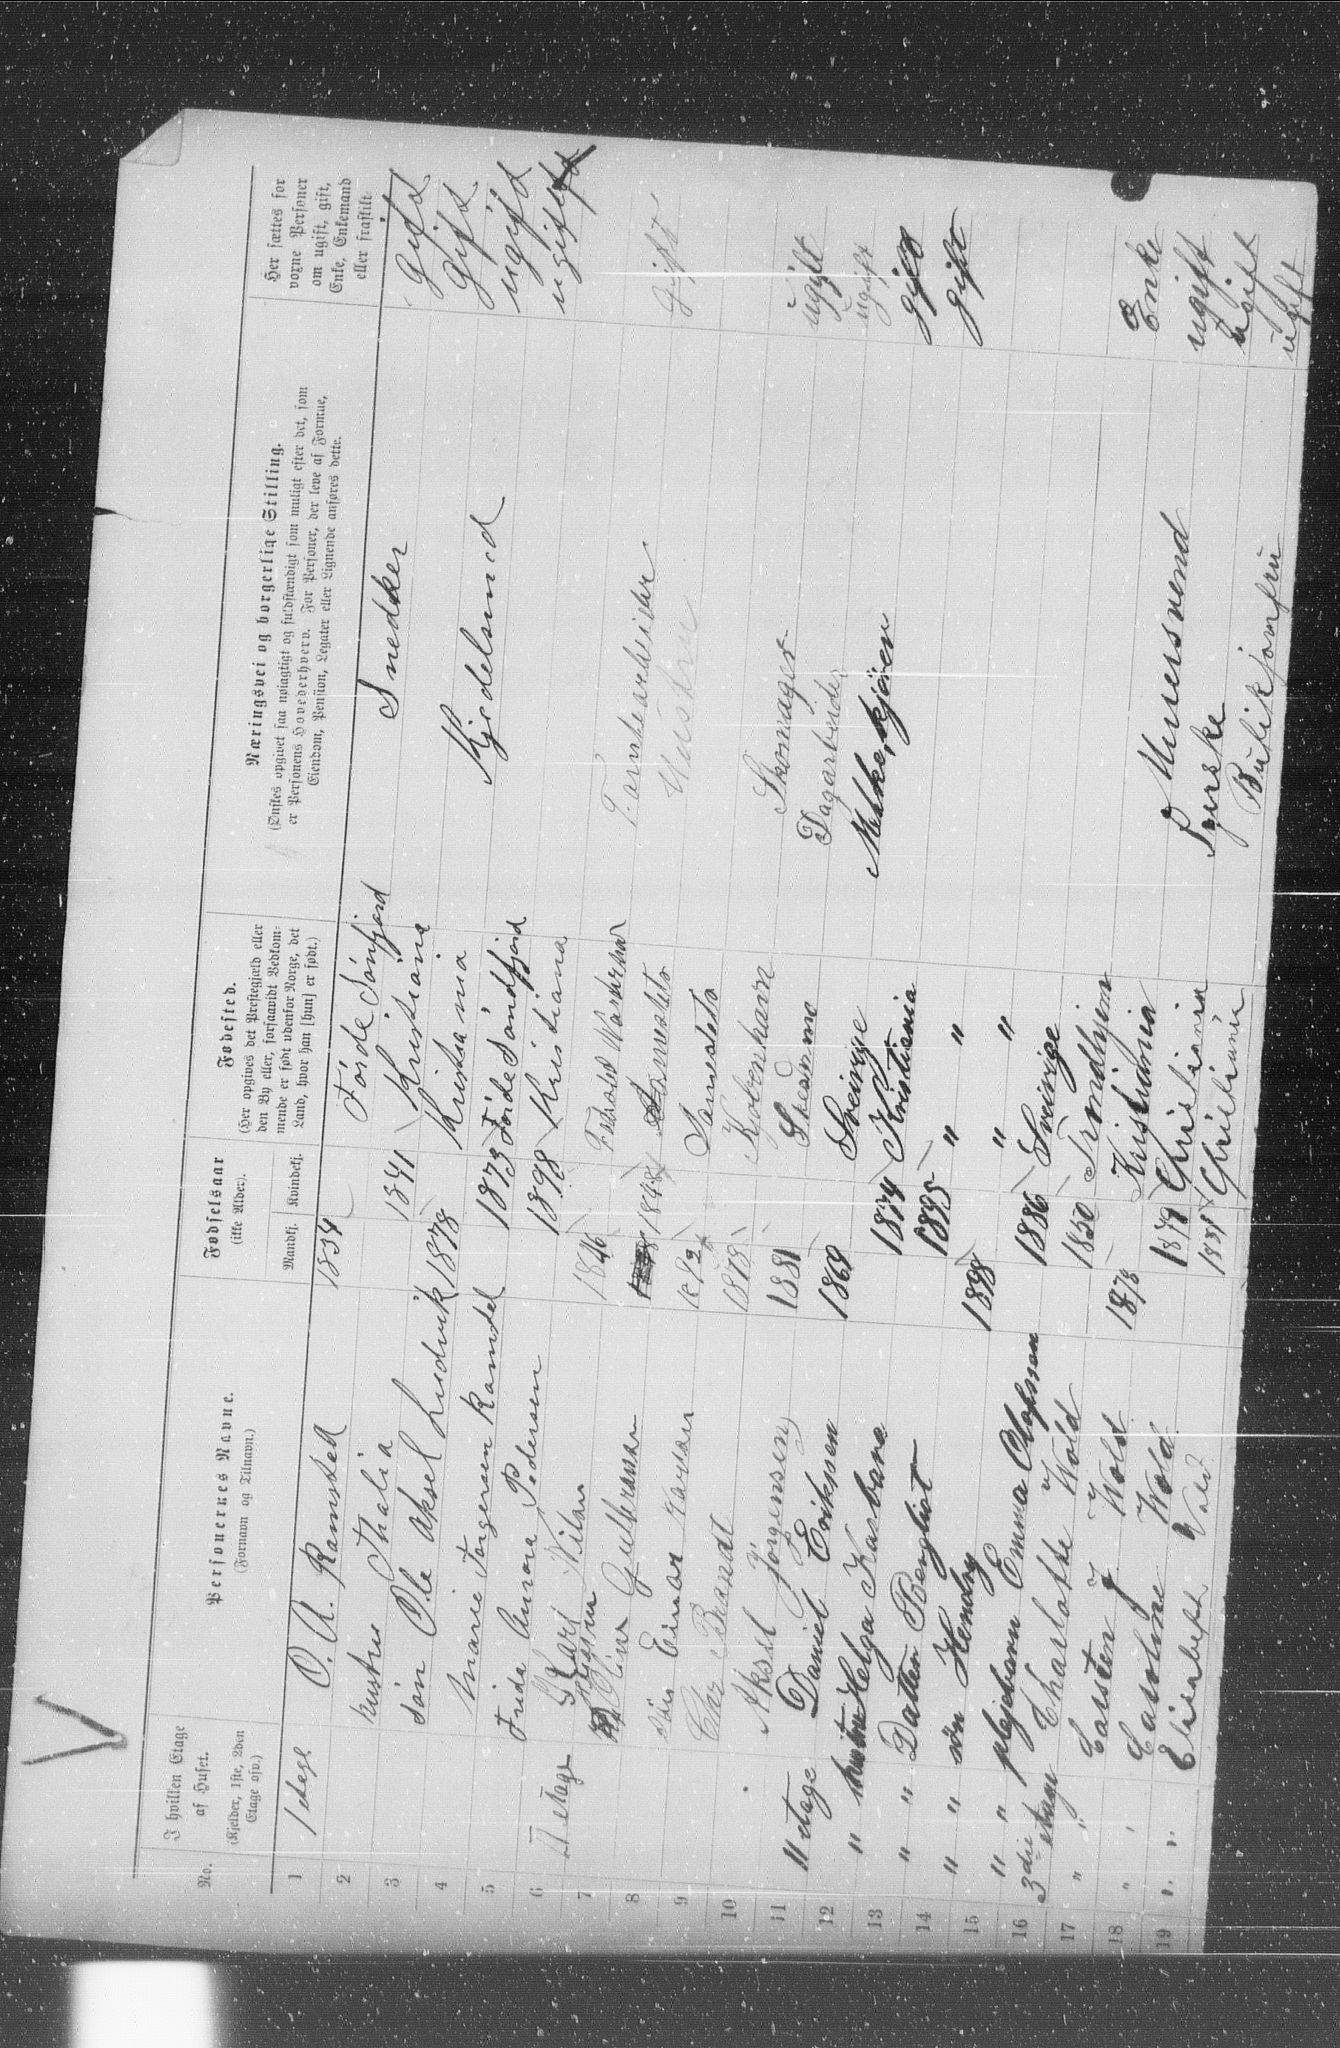 No.
I hvilken Etage
af Huset.
(Kjelder, 1ste, 2den
Etage osv.)
Personernes Navne.
(Fornavn og Tilnavn.)
Fødselsaar
(ikke Alder).
Mandkj. Kvindekj.
Fødested.
(Her opgives det Præstegjæld eller
den By eller, forsaavidt Vedkom-
mende er født udenfor Norge, det
Land, hvor han [hun] er født.)
Næringsvei og borgerlige Stilling.
(Ønskes opgivet saa nøiagtigt og fuldstændigt som muligt efter det, som
er Personens Hovederhverv. For Personer, der leve af Formue,
Eiendom, Pension, Legater eller Lignende anføres dette.
Her sættes for
voxne Personer
om ugift, gift,
Enke, Enkemand
eller fraskilt
1 1 etage O. A. Ramstad 1834 Förde Söndfjord Snedker Gift
2 hustru Thalia 1841 Kristiania Gift
3 Sön Ole Aksel Ludvik 1878 Kristiania Kjedelsmed ugift
4 Marie Torgersen Ramstad 1873 Förde Söndfjord ugift
5 Frida Aurora Pedersen 1898 Kristiania
6 II Etage Karl Nilsen 1846 Fabrikarbeider Gift
7 Oline Gulbransen 184 Hustru
8 Sön Einar Karlsen Sammesteds
9 Chr Brandt 1878 Kobenhavn Skomager ugift
10 Aksel Jörgensen 1881 Skedsmo Dagarbeider ugift
11 11 etage Daniel Eriksen 1869 Sveirige Melkekjører gift
12 " hustru Helga Karbara 1874 Kristiania gift
13 " " Datter 1895 " "
14 " " sön Hendry 1898 " "
15 " " plejebarn Emma Olafsson 1886 Sveirige
16 3die etage Charlotte Wold 1850 Trondhjem Enke
17 " " Carsten J Wold 1878 Kristiania Murersvend ugift
18 " " Caroline J Wold 1879 Christiania Syerske ugift
19 " " Elisabeth Vold 1881 Christiania Butikjomfru ugift